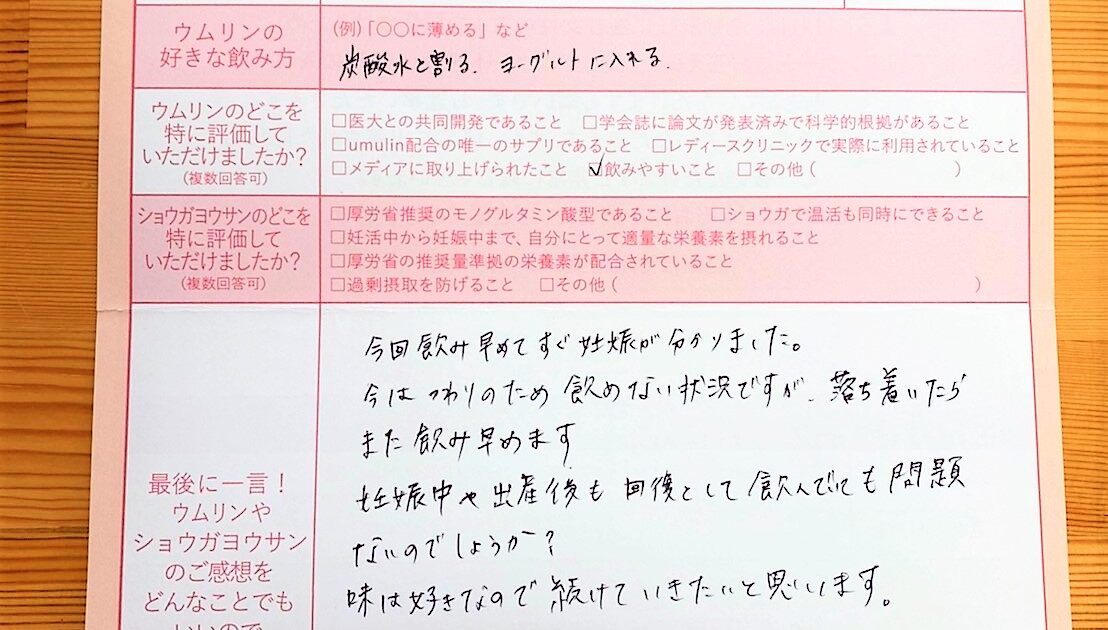 ウムリンの
好きな飲み方
(例)「〇〇に薄める」など
炭酸水と割る. ヨーグルトに入れる.
ウムリンのどこを
特に評価して
いただけましたか?
(複数回答可)
□医大との共同開発であること □学会誌に論文が発表済みで科学的根拠があること
□umulin配合の唯一のサプリであること □レディースクリニックで実際に利用されていること
□メディアに取り上げられたこと ☑飲みやすいこと □その他( )
ショウガヨウサンのどこを
特に評価して
いただけましたか?
(複数回答可)
□厚労省推奨のモノグルタミン酸型であること □ショウガで温活も同時にできること
□妊活中から妊娠中まで、自分にとって適量な栄養素を摂れること
□厚労省の推奨量準拠の栄養素が配合されていること
□過剰摂取を防げること □その他( )
最後に一言!
ウムリンや
ショウガヨウサン
のご感想を
どんなことでも
いいので
今回飲み早めてすぐ妊娠が分かりました。
今はつわりのため飲めない状況ですが、落ち着いたら
また飲み早めます
妊娠中や出産後も回復として飲んでいても問題
ないのでしょうか?
味は好きなので続けていきたいと思います。